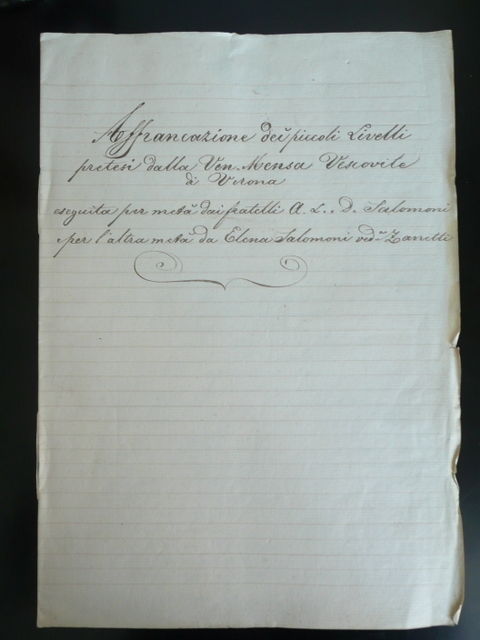 Affrancazione dei piccoli Livelli
pretesi dalla Ven. Mensa Vescovile
di Verona
eseguita per metà dai fratelli A. L. e D. Salomoni
e per l'altra metà da Elena Salomoni ved.ª Zanetti